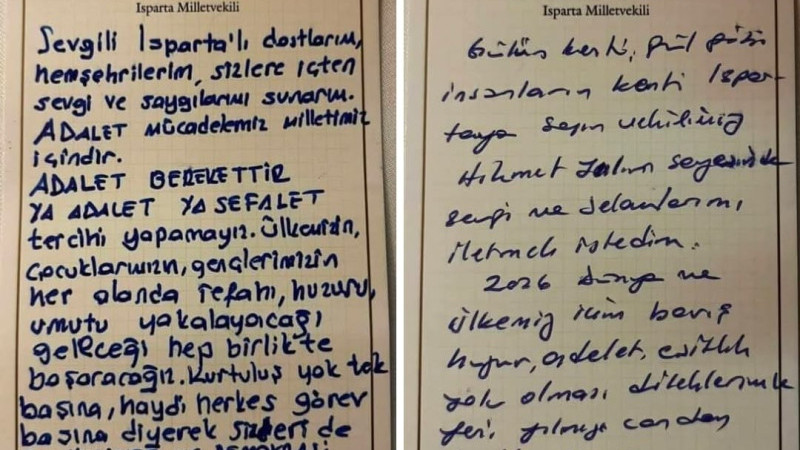 Isparta Milletvekili
Sevgili Isparta'lı dostlarım,
hemşehrilerim, sizlere içten
sevgi ve saygılarımı sunarım.
ADALET mücadelemiz milletimiz
içindir.
ADALET BEREKETTİR
YA ADALET YA SEFALET
tercihi yapamayız. Ülkemizin,
çocuklarımızın, gençlerimizin
her alanda refahı, huzuru,
umutu yakalayacağı
geleceği hep birlikte
başaracağız. Kurtuluş yok tek
başına, haydi herkes görev
başına diyerek sizleri de
Isparta Milletvekili
kenti, gül gibi
insanların kenti Ispar-
taya sayın vekilimiz
Hikmet Yalım sayesinde
sevgi ve selamlarımı
iletmek istedim.
2026 dünya ve
ülkemiz için barış
huzur, adalet, eşitlik
yılı olması dileklerimle
yeni yılınızı candan